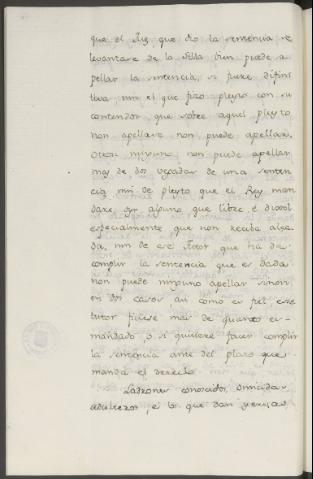 que el Juez que dio la sentencia se
levantase de la Silla bien puede a-
pellar la sentencia, si fuere difini
tiva, nin el que fizo pleyto con su
contendor que sobre aquel pleyto
non apellase non puede apellar.
Otrosi ninguno non puede apellar
mas de dos vegadas de una senten
cia, nin de pleyto que el Rey man
dare oyr alguno que libre, é
especialmente que non reciba alza
da, nin de ese Autor que ha de
complir la sentencia que es dada
non puede ninguno apellar sinon
en dos casos, asi como es, si el, ese
tutor ficiese mas de quanto es
mandado, o si quisiere facer complir
la sentencia ante del plazo que
manda el derecho
Ladrones conoscidos, omicidas
adulteros, é lo que dan